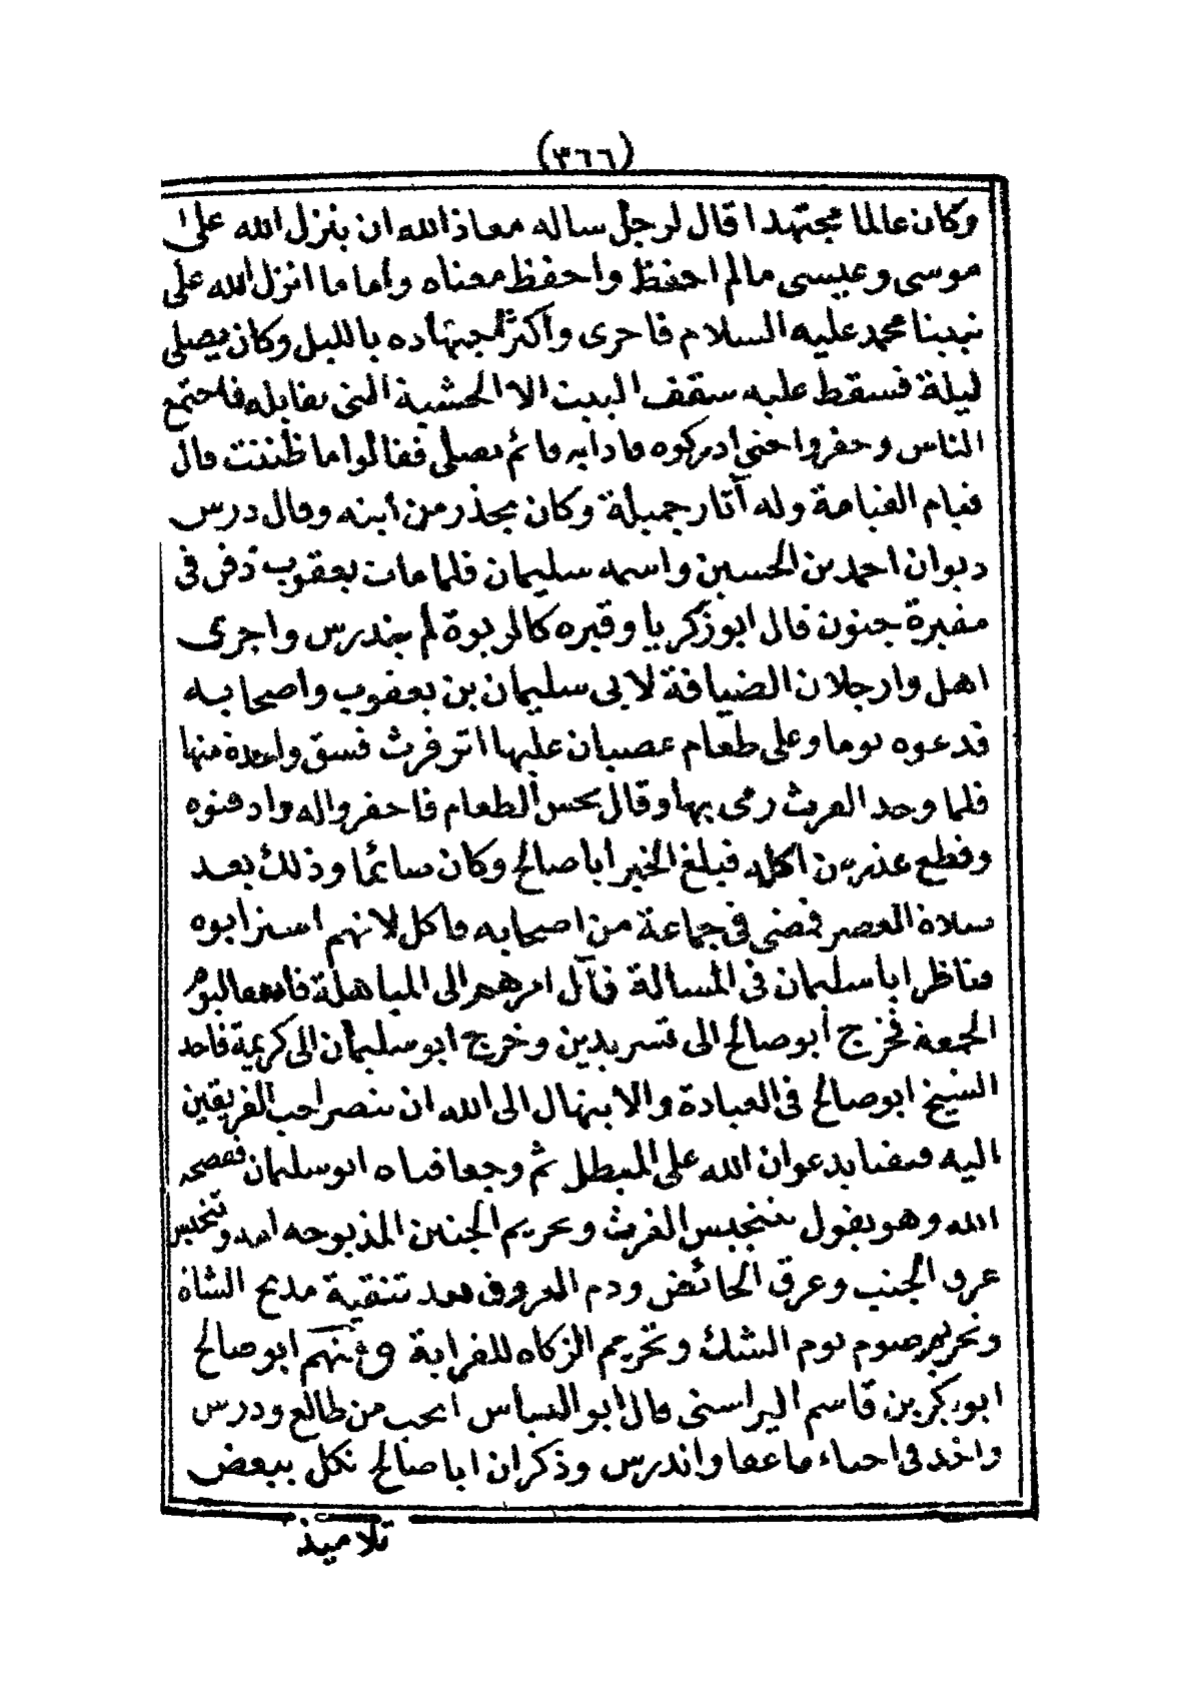 (٣٦٦)
وكان عالما مجتهدا قال لرجل ساله معاذ الله ان ينزل الله على
موسى وعيسى مالم احفظ واحفظ معناه وأما ما انزل الله على
نبينا محمد عليه السلام فاحرى واكثر اجتهاده بالليل وكان يصلى
ليلة فسقط عليه سقف البيت الا الخشبة التى تقابله فاجتمع
الناس وحفروا حتى أدركوه فاذابه قائم يصلى فقالوا ما ظننت قال
قيام القيامة وله آثار جميلة وكان يحذر من أبنه وقال درس
ديوان احمد بن الحسين واسمه سليمان فلما مات يعقوب دفن فى
مقبرة جنون قال ابو زكريا وقبره كالربوة لم يندرس واجرى
اهل وارجلان الضيافة لابى سليمان بن يعقوب واصحابه
فدعوه يوما وعلى طعام عصبان عليها اثر فرث فسق واحدة منها
فلما وجد الفرث رمى بها وقال نجس الطعام فاحفروا له وادفنوه
وقطع عذر من اكله فبلغ الخبر اباصالح وكان صائما وذلك بعد
صلاة العصر فمضى فى جماعة من اصحابه فاكل لانهم
وناظر ابا سليمان فى المسالة فآل امرهم الى المباهلة
الجمعة فخرج أبوصالح الى تسريدين وخرج ابو سليمان الى كريمة فاخذ
الشيخ ابوصالح فى العبادة والابتهال الى الله ان ينصر احب الفريقين
اليه يدعوان الله على المبطل ثم رجعا ابو سليمان ففضحه
الله وهو يقول بتنجيس الفرث وتحريم الجنين المذبوحه امه وتنجيس
عرق الجنب وعرق الحائض ودم العروق بعد تنقية مذبح الشاة
وتحريم صوم يوم الشك وتحريم الزكاة للقرابة ابو صالح
ابوبكر بن قاسم اليراسنى قال ابو العباس من طالع ودرس
واخذ فى احياء ما عفا واندرس وذكر ان ابا صالح نكل ببعض
تلاميذ